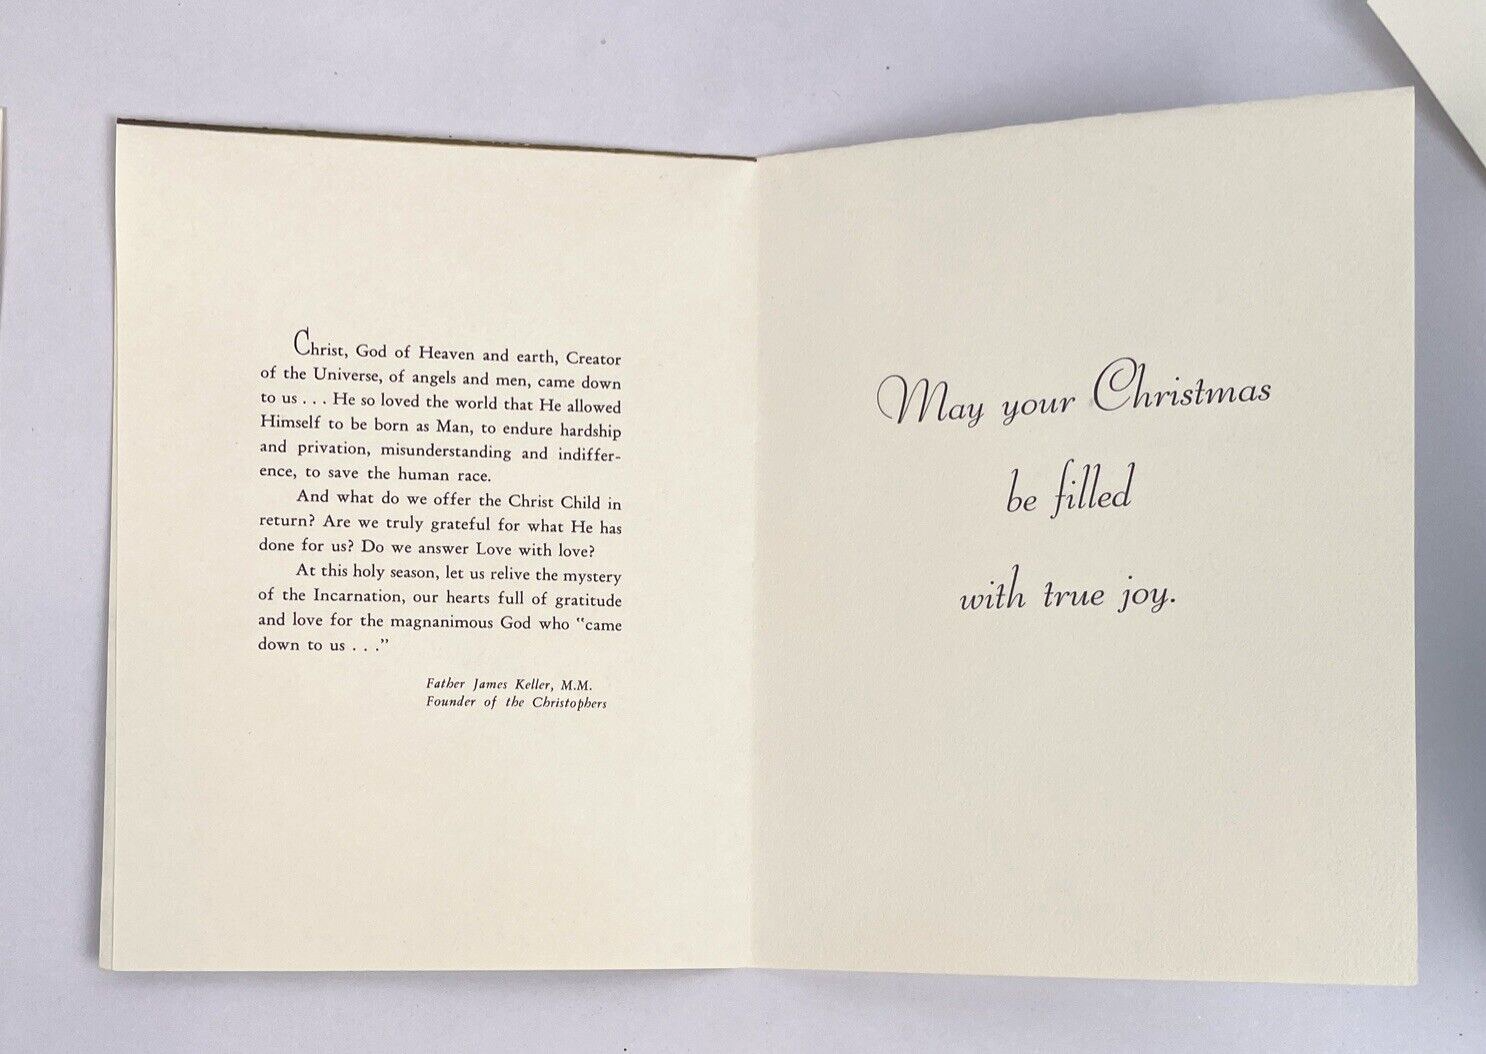 Christ, God of Heaven and earth, Creator
of the Universe, of angels and men, came down
to us . . . He so loved the world that He allowed
Himself to be born as Man, to endure hardship
and privation, misunderstanding and indiffer-
ence, to save the human race.
And what do we offer the Christ Child in
return? Are we truly grateful for what He has
done for us? Do we answer Love with love?
At this holy season, let us relive the mystery
of the Incarnation, our hearts full of gratitude
and love for the magnanimous God who "came
down to us . . ."
Father James Keller, M.M.
Founder of the Christophers
May your Christmas
be filled
with true joy.